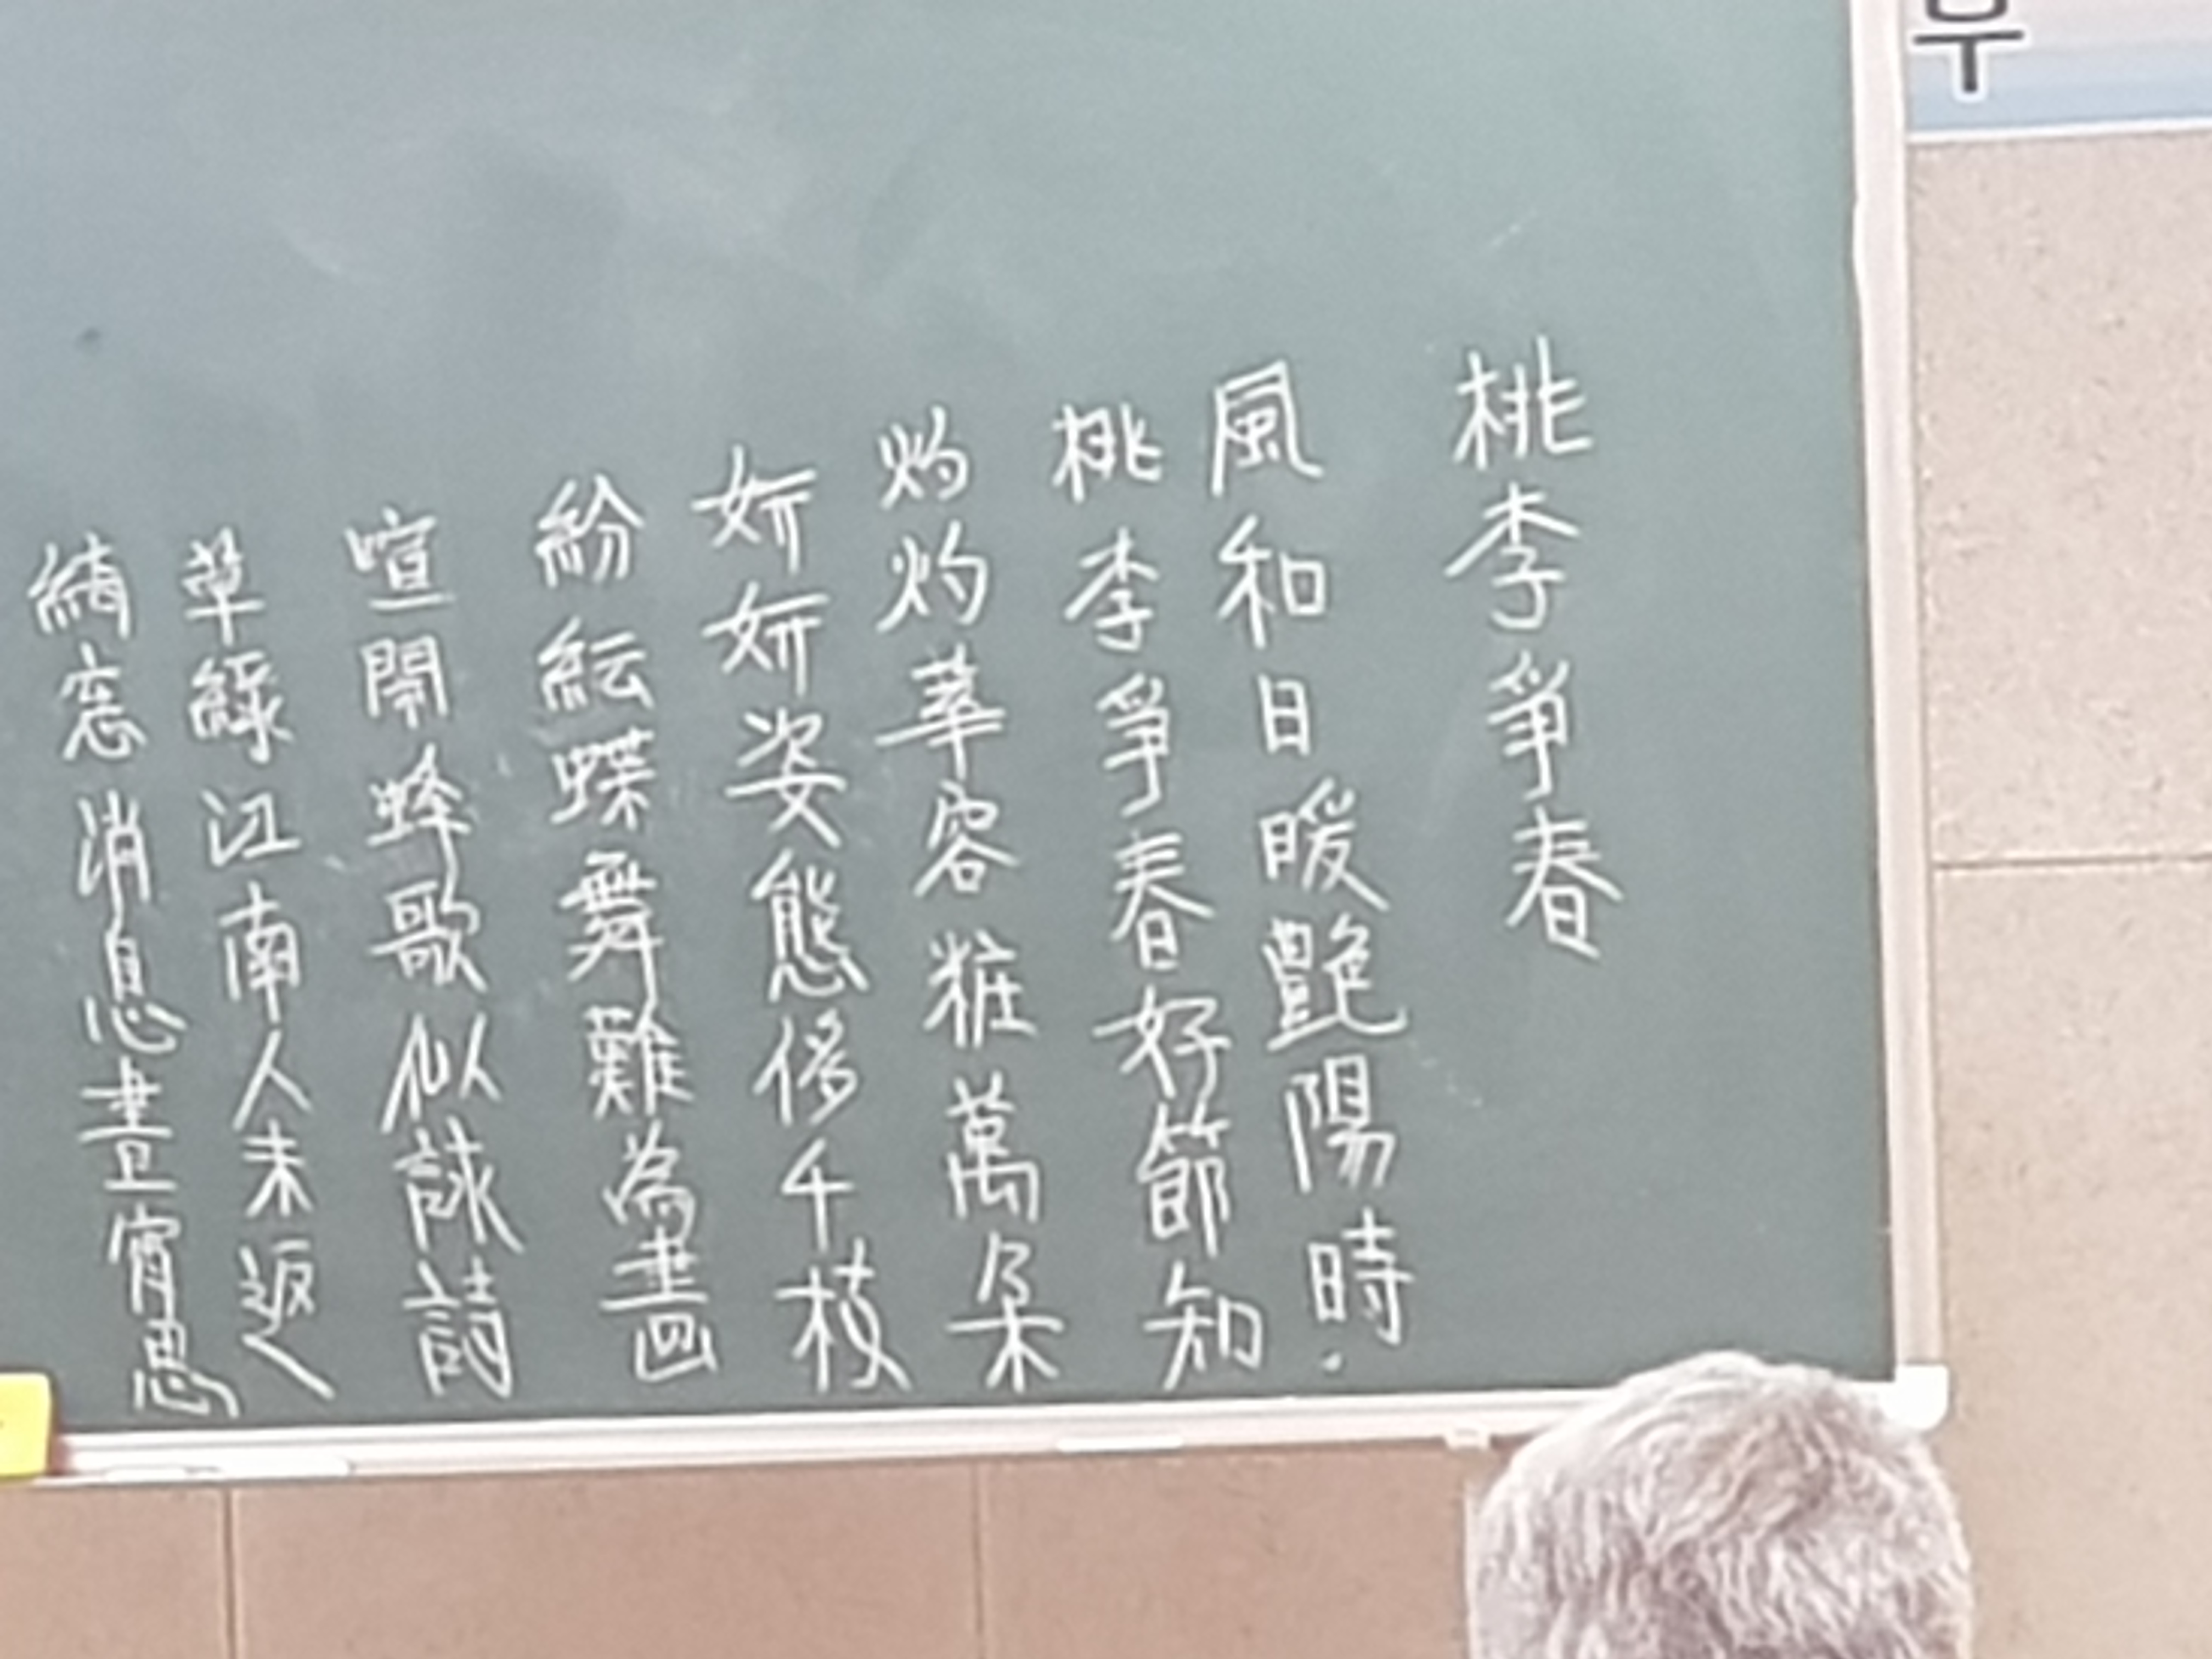 桃李爭春
風和日暖艷陽時
桃李爭春好節知
灼灼華容粧萬朵
妍妍姿態侈千枝
紛紜蝶舞難為畫
喧鬧蜂歌似誠詩
草綠江南人未返
窓消息晝宵思
우